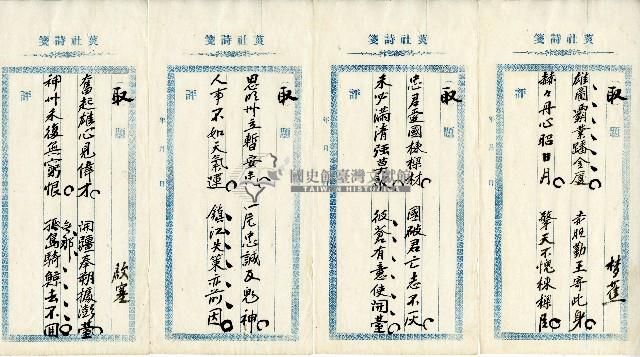 社詩箋
取
題
雄圖霸業蹟全廈 赤膽勤王寄此身
赫々丹心昭日月 擎天不愧棟樑臣
評
年 月 日
社詩箋
取
題
忠君 國棟樑材 國破君亡志不灰
未必滿清強莫 彼蒼有意使開臺
評
年 月 日
社詩箋
取
題
思明州立暫安 忠誠及鬼神
人事不如天氣運 鎮江失策亦前因
評
年 月 日
社詩箋
取
題
奮起雄心見偉才 開疆奉朔據澎臺
神州未復無窮恨 騎鯨去不回
評
年 月 日
國史館臺灣文獻館
TAIWAN HISTORICA